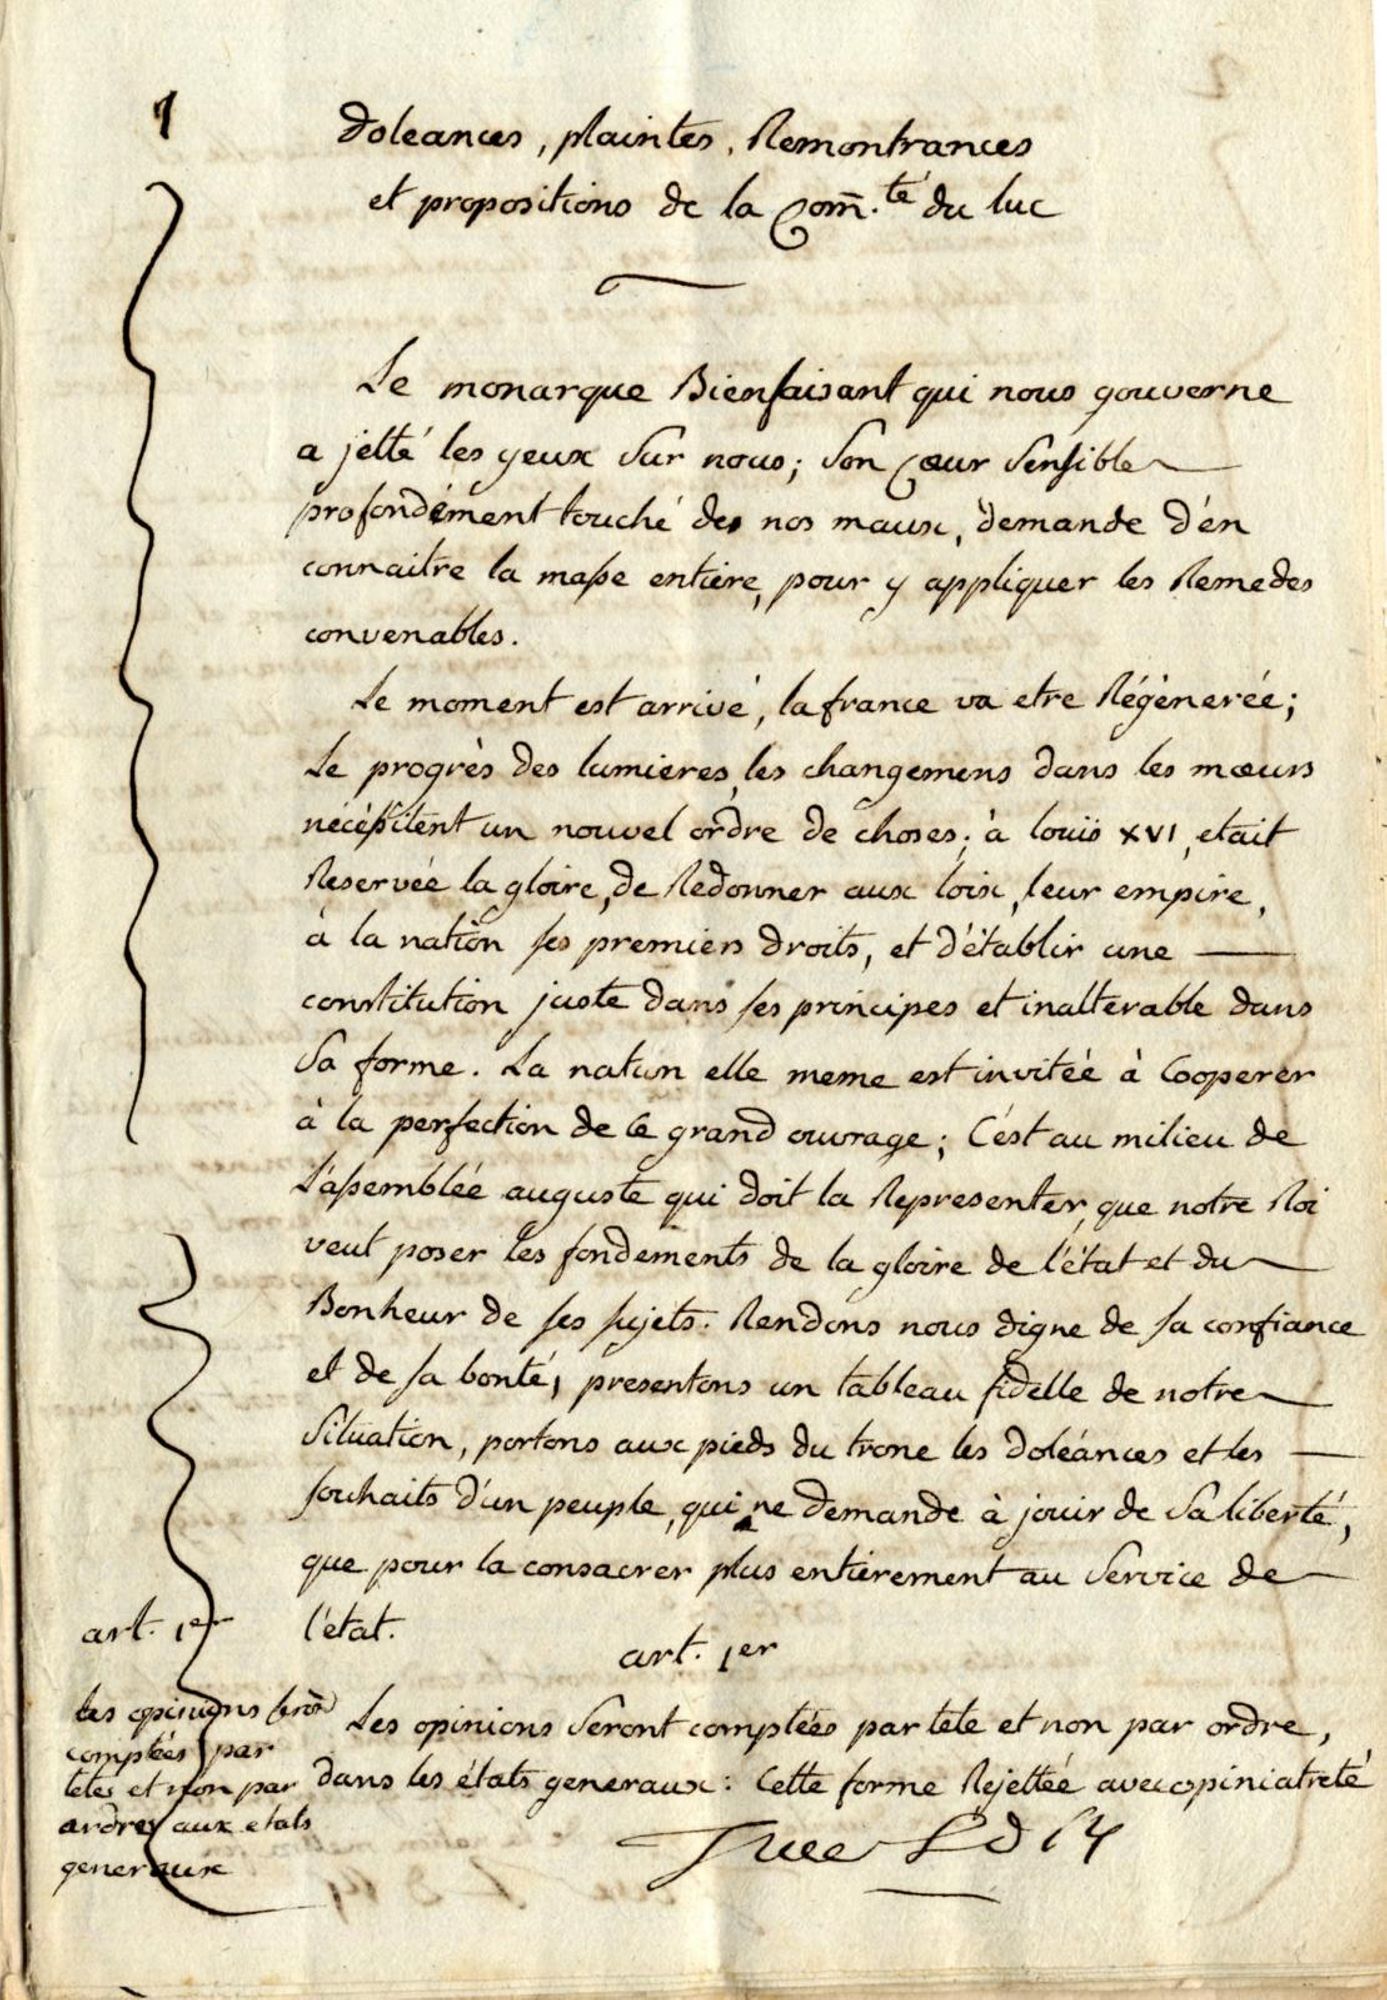 1
doleances, plaintes, Remontrances
et propositions de la Com̃.té du luc
Le monarque Bienfaisant qui nous gouverne
a jetté les yeux Sur nous; Son Cœur Sensible
profondément touché des nos maux, demande d'én
connaitre la masse entière, pour y appliquer les Remedes
convenables.
Le moment est arrivé, la france va etre Régènerée;
Le progrès des lumieres, les changemens dans les mœurs
nécèssitent un nouvel ordre de choses; à louis XVI, etait
Reservée la gloire, de Redonner aux loix, leur empire,
à la nation ses premiers droits, et d'établir une
constitution juste dans ses principes et inalterable dans
Sa forme. La nation elle meme est invitée à Cooperer
à la perfection de ce grand ouvrage; C'est au milieu de
L'assemblée auguste qui doit la Representer, que notre Roi
veut poser les fondements de la gloire de l'état et du
Bonheur de ses sujets. Rendons nous digne de sa confiance
et de sa bonté; presentons un tableau fidelle de notre
Situation, portons aux pieds du trone les doléances et les
souhaits d'un peuple, qui ne demande à jouir de Sa liberté,
que pour la consacrer plus entierement au Service de
l'état.
art. 1er
art. 1er
les opinions seron
comptées par
tetes et non par
ordres aux etats
generaux
Les opinions Seront comptées par tete et non par ordre,
dans les états generaux: Cette forme Rejettée avec opiniatreté